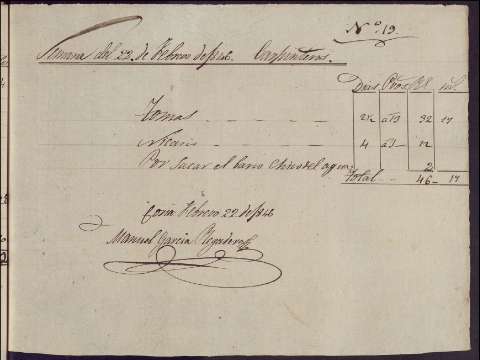 Nº 19.
Semana del 23 de Febrero de 1846. Carpinteros.
Dias Pros Rl ml.
Tomas 2½ a 13 32 17
4 a 3 12
Por Sacar el barco Chico del agua 2
Total 46 17
Coria Febrero 22 de 1846
Manuel Garcia